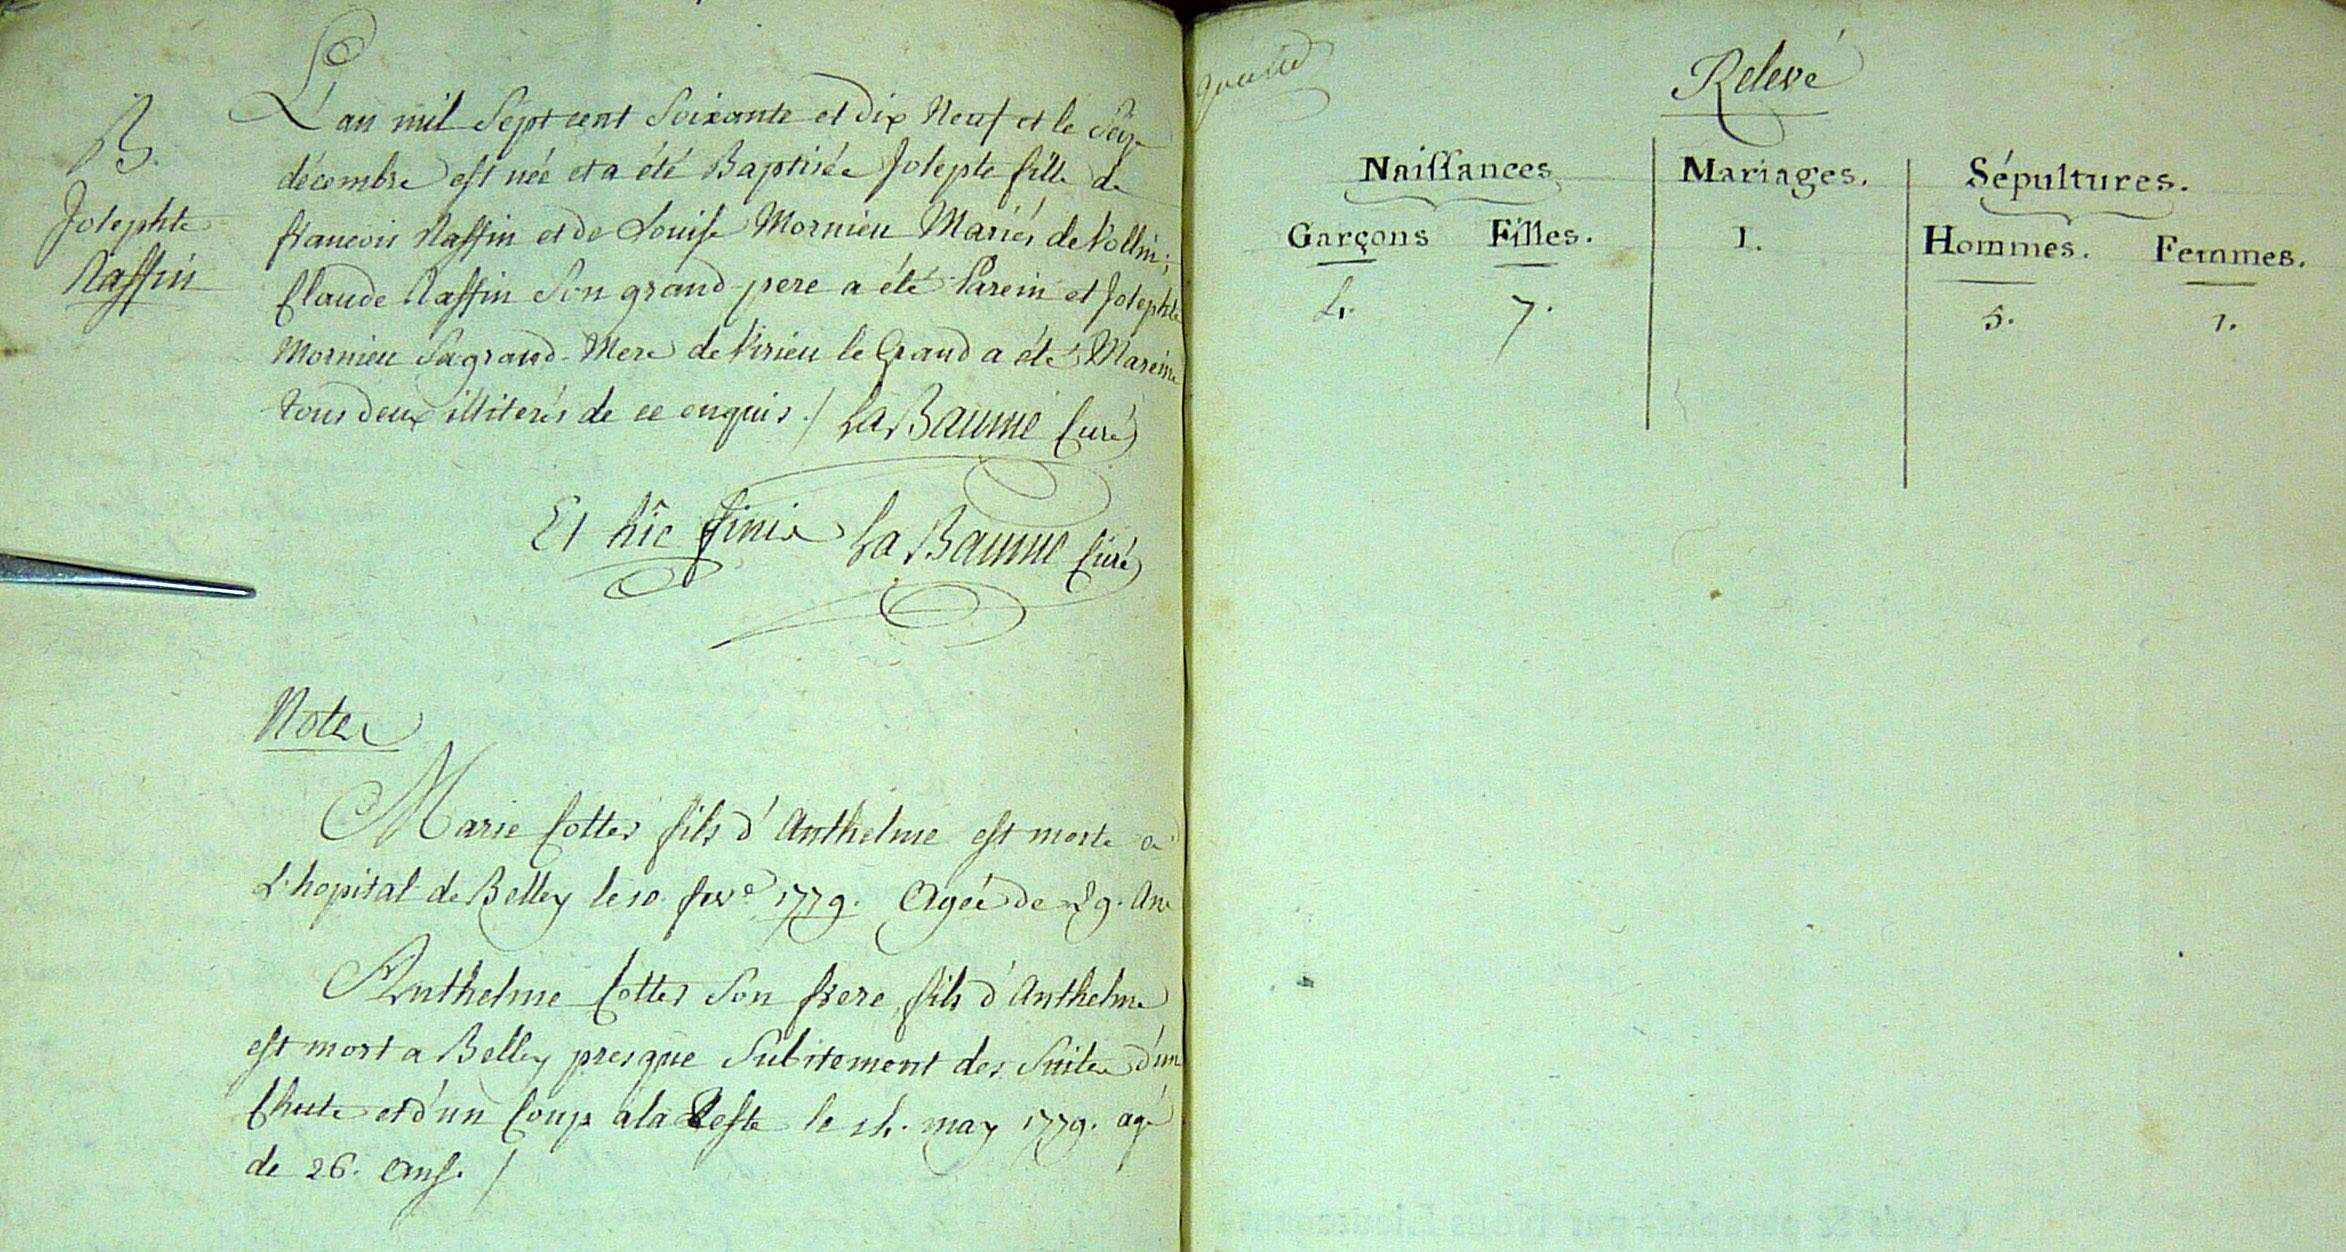 B.
Josephte
Raffin
L'an mil Sept cent Soixante et dix Neuf et le Seize
décembre est née et a été Baptisée Josepte fille de
francois Raffin et de Louise Mornieu Mariés de Vollin;
Claude Raffin Son grand-pere a été Parein et Josephte
Mornieu Sa grand-Mere de Virieu le Grand a été Mareine
tous deux illiterés de ce enquis./ La Baume Curé
Et hîc finis La Baume Curé
Notes
Marie Cottes fils d'Anthelme est morte a
L'hopital de Belley le 10. fevr. 1779. Agée de 29. Ans
Anthelme Cottes Son frere, fils d'Anthelme
est mort a Belley presque Subitement des Suites d'un
Chute et d'un Coup a la teste le 14. may 1779. agé
de 26. Ans. /
Relevé
Naissances Mariages. Sépultures.
Garçons Filles. 1. Hommes. Femmes.
4. 7. 5. 1.